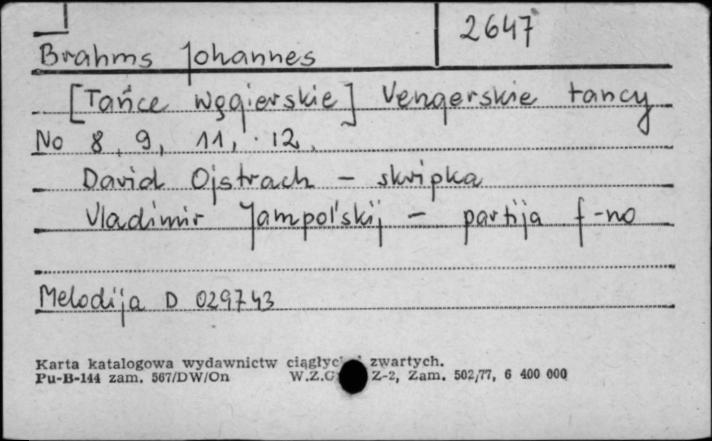 2647
Brahms Johannes
[Tańce węgierskie] Vengerskie tancy
No 8, 9, 11, 12.
David Ojstrach - skripka
Vladimir Jampol'skij - partija f-no
Melodija D 029743
Karta katalogowa wydawnictw ciągłych i zwartych.
Pu-B-144 zam. 567/DW/On W.Z.G. Z-2, Zam. 502/77, 6 400 000